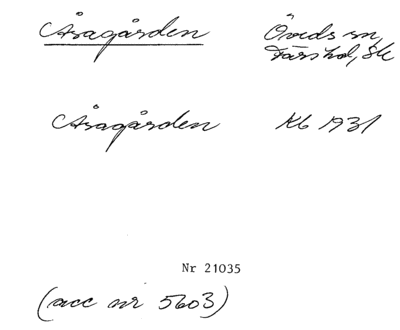 Åsagården Öveds sn,
Färs hd, Sk
Åsagården Kb 1931
Nr 21035
(acc nr 5603)